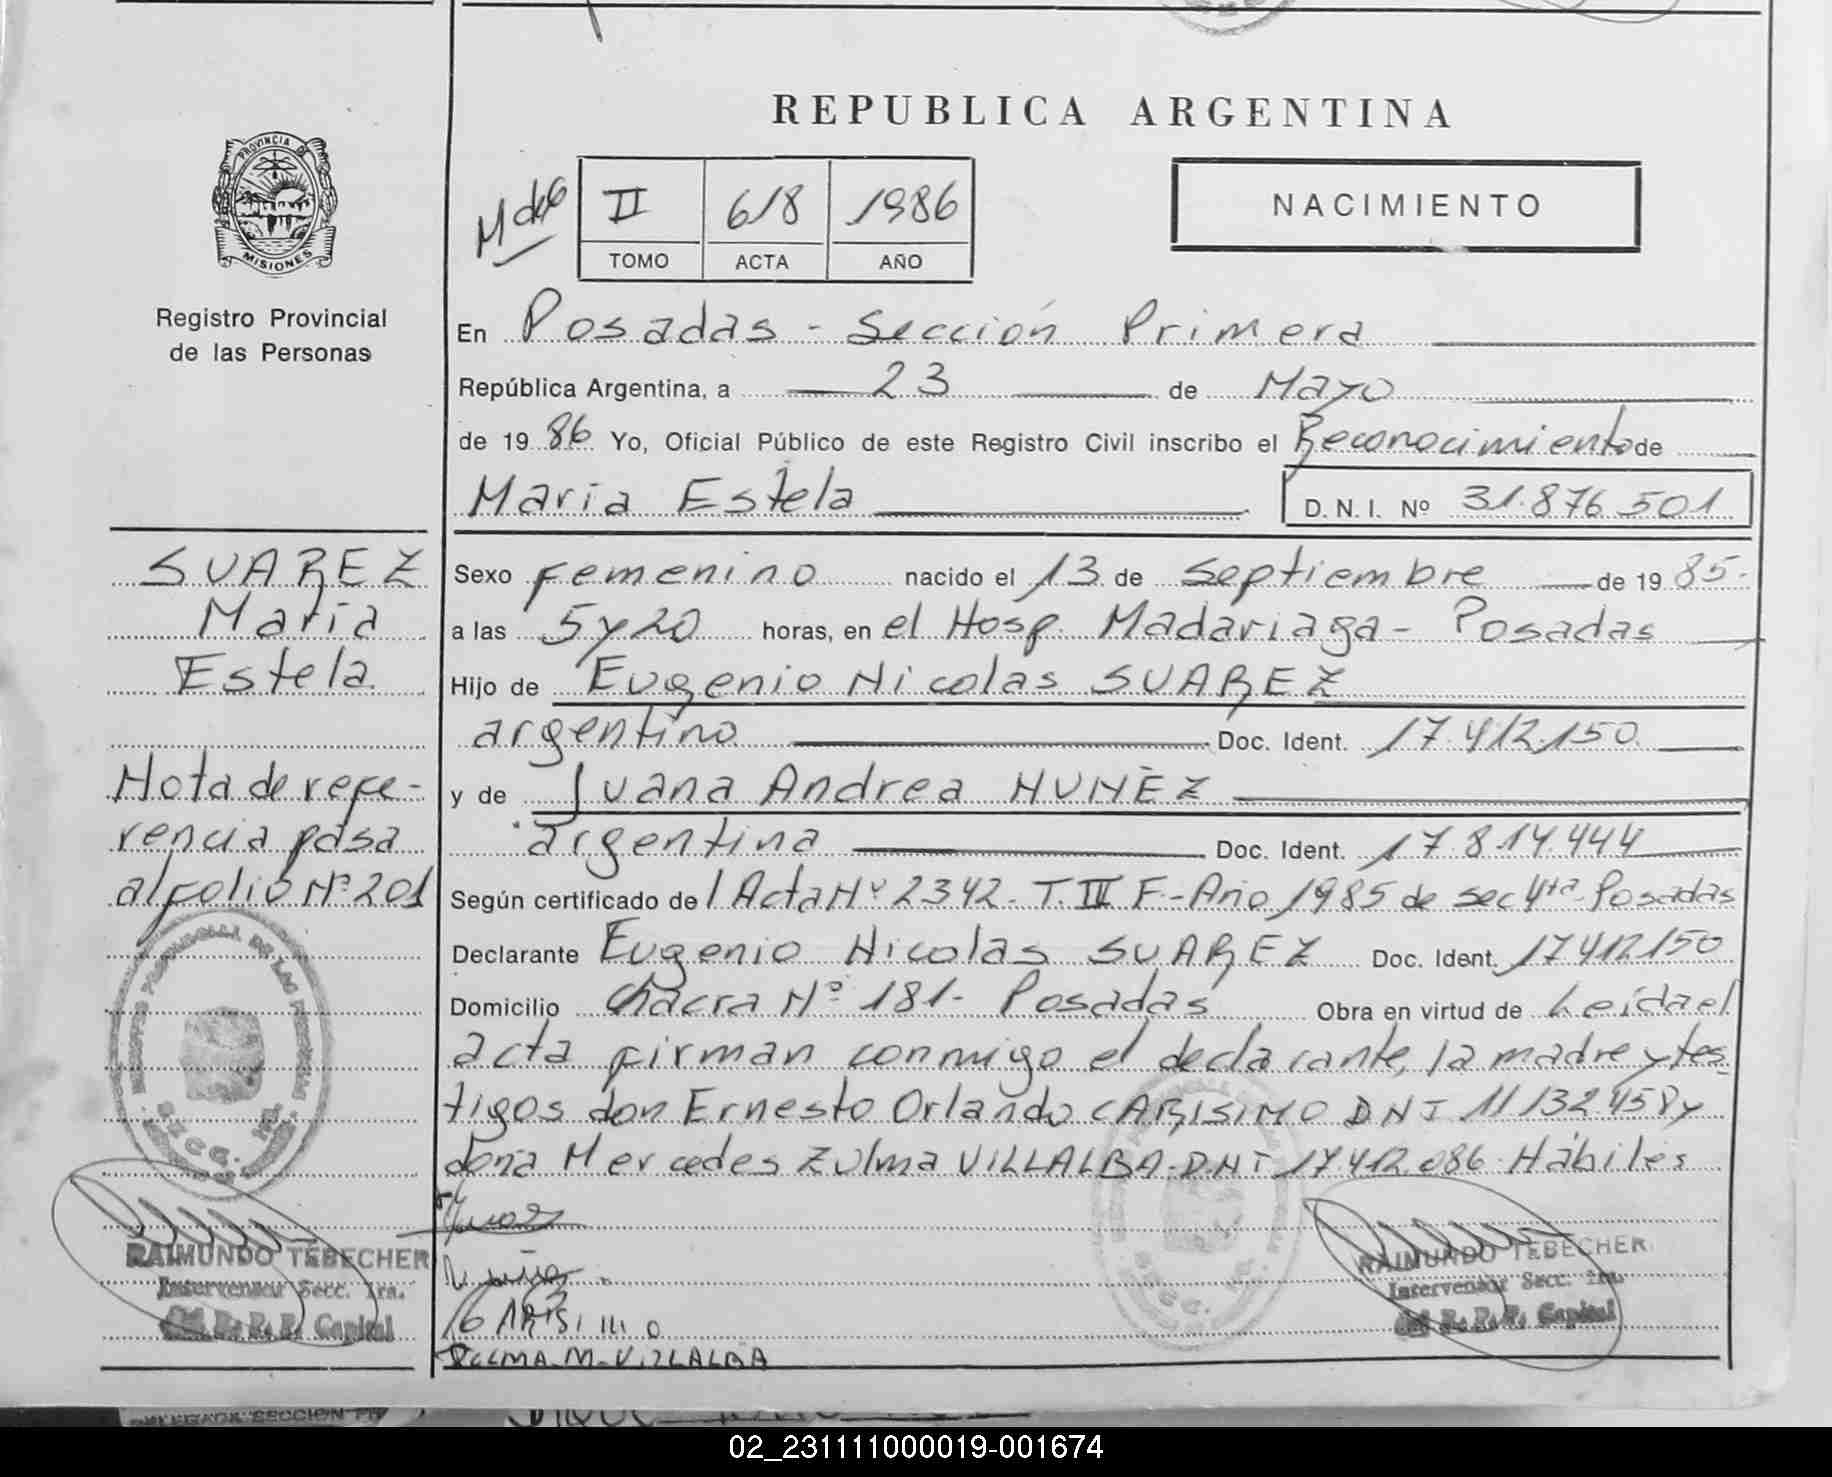 REPUBLICA ARGENTINA
PROVINCIA DE
MISIONES
Registro Provincial
de las Personas
II 618 1986
TOMO ACTA AÑO
NACIMIENTO
En Posadas - Sección Primera
República Argentina, a 23 de Mayo
de 19 86 Yo, Oficial Público de este Registro Civil inscribo el Reconocimiento de
Maria Estela D. N. I. Nº 31.876.501
SUAREZ
María
Estela
Nota de refe-
rencia pasa
al folio Nº 201
Sexo femenino nacido el 13 de Septiembre de 19 85.
a las 5 y 20 horas, en el Hosp. Madariaga - Posadas
Hijo de Eugenio Nicolas SUAREZ
argentino Doc. Ident. 17.412.150.
y de Juana Andrea NUÑEZ
argentina Doc. Ident. 17.814.444
Según certificado de l Acta Nº 2342 - T. III F. - Año 1985 de sec 4ta - Posadas
Declarante Eugenio Nicolas SUAREZ Doc. Ident. 17.412.150
Domicilio Chacra Nº 181 - Posadas Obra en virtud de Leída el
acta firman conmigo el declarante, la madre y tes-
tigos don Ernesto Orlando CARISIMO DNI 11.132.458 y
doña Mercedes Zulma VILLALBA - DNI 17.412.086. Hábiles
RAIMUNDO TEBECHER
Interventor Secc. 1ra.
del R. P. P. Capital
CARISIMO
ZULMA-M-VILLALBA
RAIMUNDO TEBECHER
Interventor Secc. 1ra.
del R. P. P. Capital
02_231111000019-001674